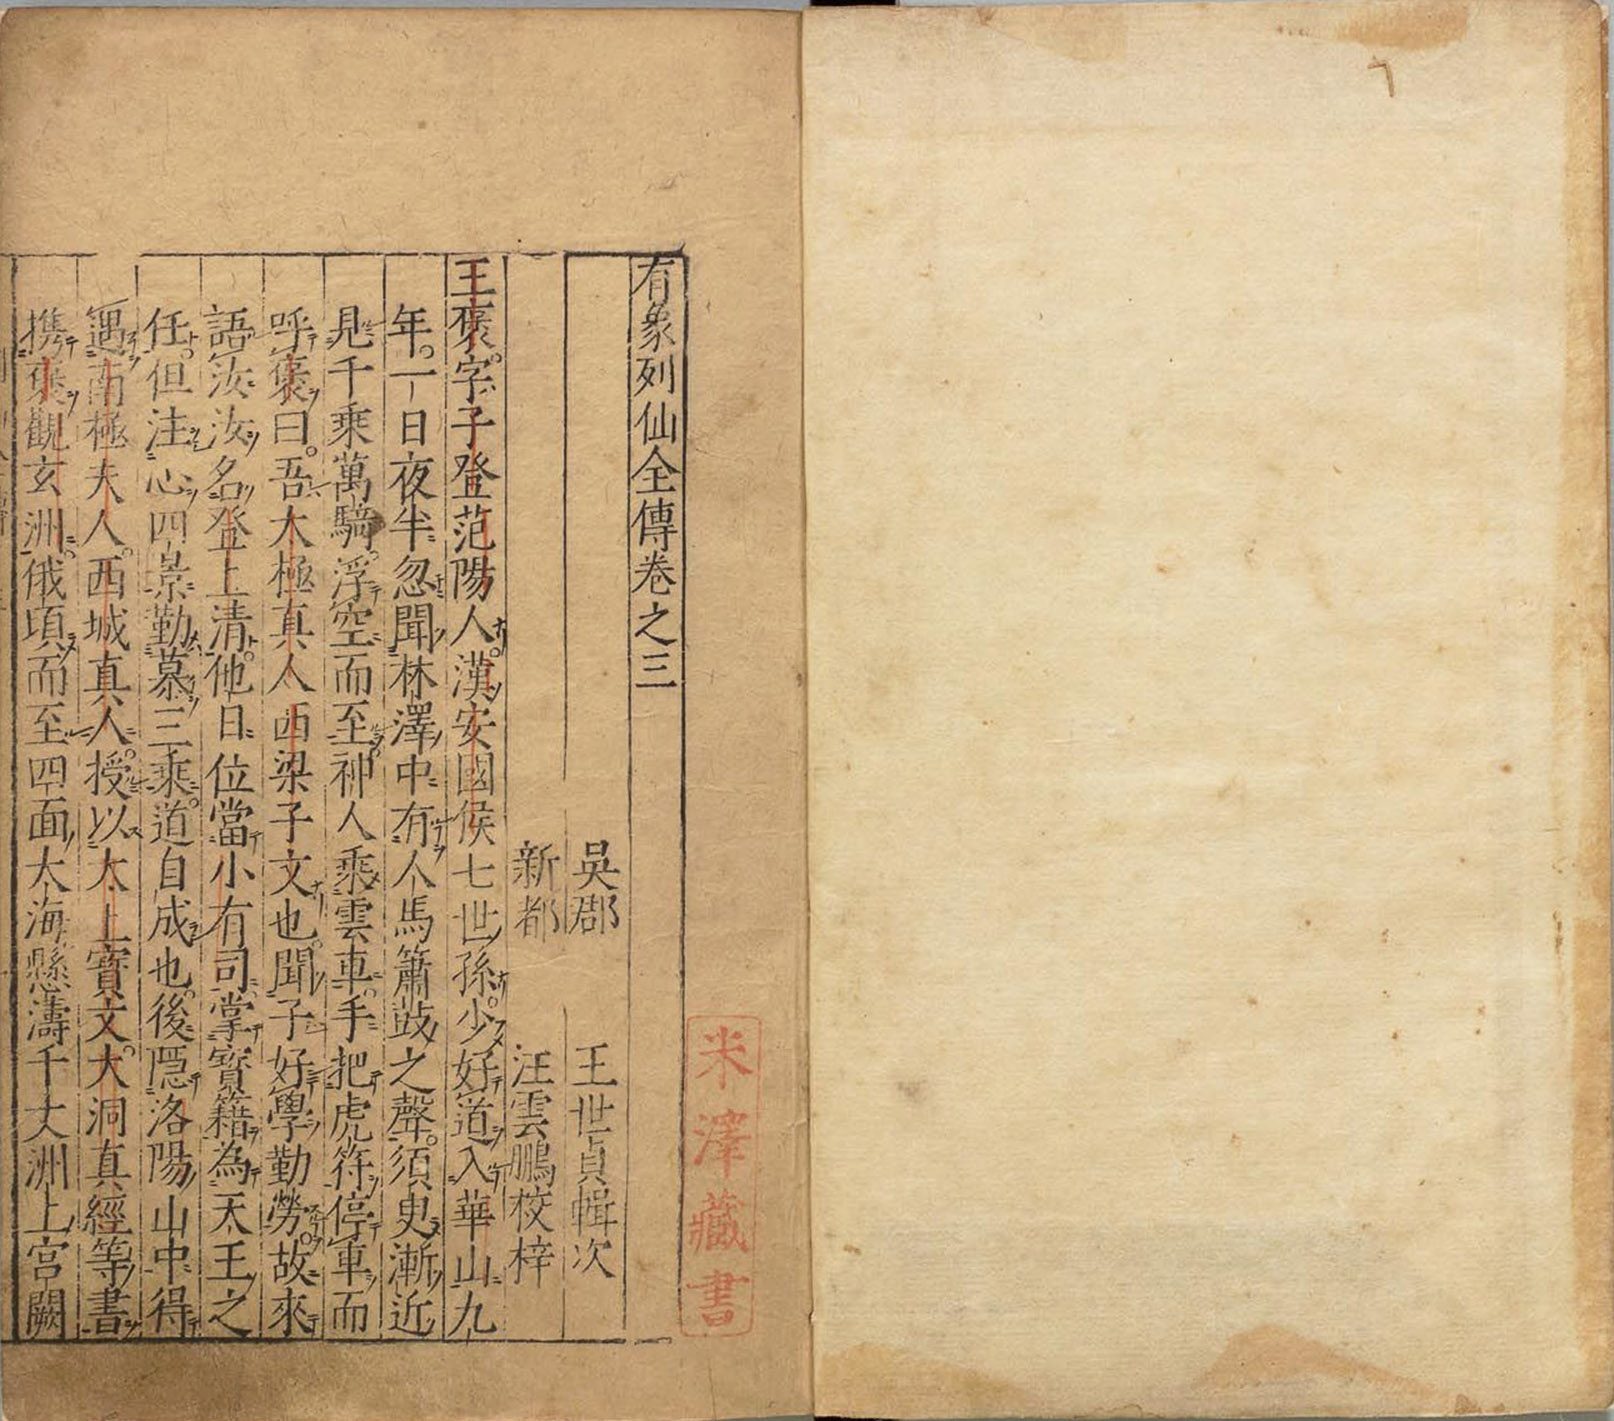 有象列仙全傳卷之三
吳郡　王世貞輯次
新都　汪雲鵬校梓
王褒字子登范陽人漢安國侯七世孫少好道入華山九
年一日夜半忽聞林澤中有人馬簫鼓之聲須臾漸近
見千乘萬騎浮空而至神人乘雲車手把虎符停車而
呼褒曰吾太極真人西梁子文也聞子好學勤勞故來
語汝汝名登上清他日位當小有司掌寳籍為天王之
任但注心四景勤慕三乘道自成也後隱洛陽山中得
遇南極夫人西城真人授以太上寳文大洞真經等書
携褒觀玄洲俄頃而至四面大海懸濤千丈洲上宮闕
米澤藏書